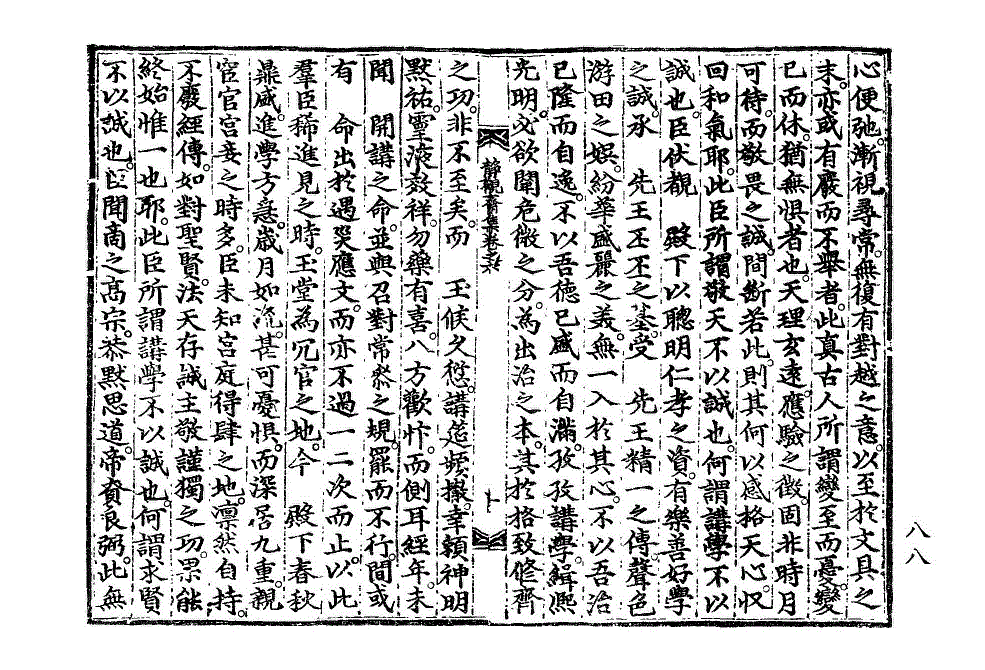 心便弛。漸視尋常。無復有對越之意。以至於文具之
末。亦或有廢而不擧者。此眞古人所謂變至而憂。變
已而休。猶無懼者也。天理玄遠。應驗之徵。固非時月
可待。而敬畏之誠。間斷若此。則其何以感格天心。怳
回和氣耶。此臣所謂敬天不以誠也。何謂講學不以
誠也。臣伏覩 殿下以聰明仁孝之資。有樂善好學
之誠。承 先王丕丕之基。受 先王精一之傳。聲色
游田之娛。紛華盛麗之美。無一入於其心。不以吾治
已隆而自逸。不以吾德已盛而自滿。孜孜講學。緝熙
光明。必欲闡危微之分。爲出治之本。其於格致修齊
靜觀齋集卷之六
十
之功。非不至矣。而 玉候久愆。講筵頻撤。幸賴神明
默祐。靈液效祥。勿藥有喜。八方歡忭。而側耳經年。未
聞 開講之命。並與召對常參之規。罷而不行。間或
有 命出於遇災應文。而亦不過一二次而止。以此
羣臣稀進見之時。玉堂爲冗官之地。今 殿下春秋
鼎盛。進學方急。歲月如流。甚可憂惧。而深居九重。親
宦官宮妾之時多。臣未知宮庭得肆之地。凛然自持。
不廢經傳。如對聖賢。法天存誠主敬謹獨之功。果能
終始惟一也耶。此臣所謂講學不以誠也。何謂求賢
不以誠也。臣聞商之高宗。恭默思道。帝賚良弼。此無
八八